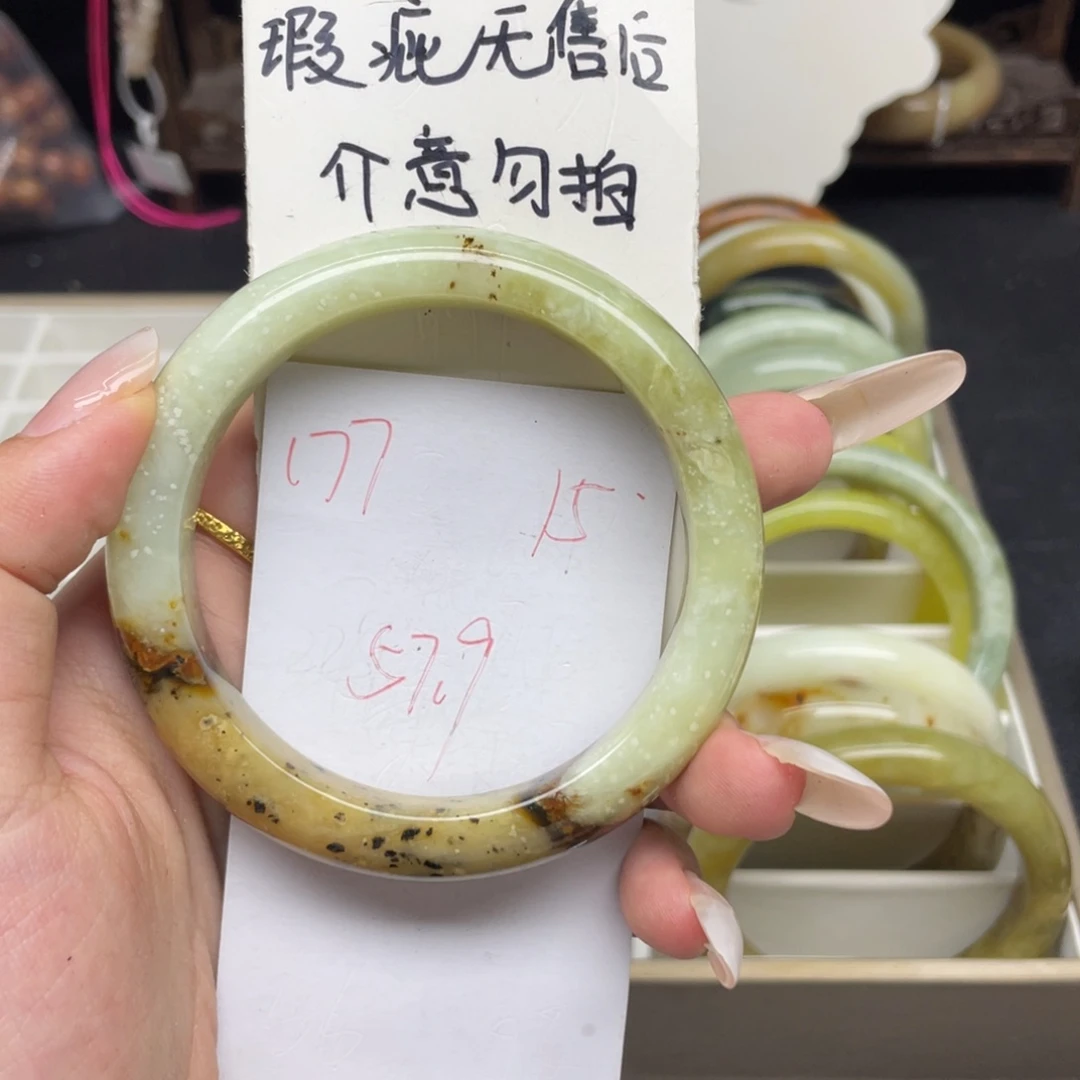 瑕疵无售后
介意勿拍
177
15
57.9